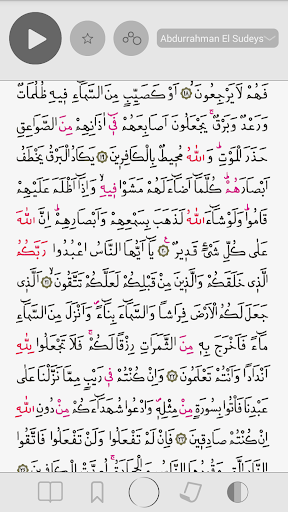 Abdurrahman El Sudeys
فَهُمْ لَا يَرْجِعُونَۙ ﴿١٨﴾ اَوْ كَصَيِّبٍ مِنَ السَّمَٓاءِ ف۪يهِ ظُلُمَاتٌ
وَرَعْدٌ وَبَرْقٌۚ يَجْعَلُونَ اَصَابِعَهُمْ ف۪ٓي اٰذَانِهِمْ مِنَ الصَّوَاعِقِ
حَذَرَ الْمَوْتِۜ وَاللّٰهُ مُح۪يطٌ بِالْكَافِر۪ينَ ﴿١٩﴾ يَكَادُ الْبَرْقُ يَخْطَفُ
اَبْصَارَهُمْۜ كُلَّمَٓا اَضَٓاءَ لَهُمْ مَشَوْا ف۪يهِۙ وَاِذَٓا اَظْلَمَ عَلَيْهِمْ
قَامُواۜ وَلَوْ شَٓاءَ اللّٰهُ لَذَهَبَ بِسَمْعِهِمْ وَاَبْصَارِهِمْۜ اِنَّ اللّٰهَ
عَلٰى كُلِّ شَيْءٍ قَد۪يرٌ۟ ﴿٢٠﴾ يَٓا اَيُّهَا النَّاسُ اعْبُدُوا رَبَّكُمُ
الَّذ۪ي خَلَقَكُمْ وَالَّذ۪ينَ مِنْ قَبْلِكُمْ لَعَلَّكُمْ تَتَّقُونَۙ ﴿٢١﴾ اَلَّذ۪ي
جَعَلَ لَكُمُ الْاَرْضَ فِرَاشًا وَالسَّمَٓاءَ بِنَٓاءًۖ وَاَنْزَلَ مِنَ السَّمَٓاءِ
مَٓاءً فَاَخْرَجَ بِه۪ مِنَ الثَّمَرَاتِ رِزْقًا لَكُمْۚ فَلَا تَجْعَلُوا لِلّٰهِ
اَنْدَادًا وَاَنْتُمْ تَعْلَمُونَ ﴿٢٢﴾ وَاِنْ كُنْتُمْ ف۪ي رَيْبٍ مِمَّا نَزَّلْنَا عَلٰى
عَبْدِنَا فَأْتُوا بِسُورَةٍ مِنْ مِثْلِه۪ۖ وَادْعُوا شُهَدَٓاءَكُمْ مِنْ دُونِ اللّٰهِ
اِنْ كُنْتُمْ صَادِق۪ينَ ﴿٢٣﴾ فَاِنْ لَمْ تَفْعَلُوا وَلَنْ تَفْعَلُوا فَاتَّقُوا
النَّارَ الَّت۪ي وَقُودُهَا النَّاسُ وَالْحِجَارَةُۚ اُعِدَّتْ لِلْكَافِر۪ينَ